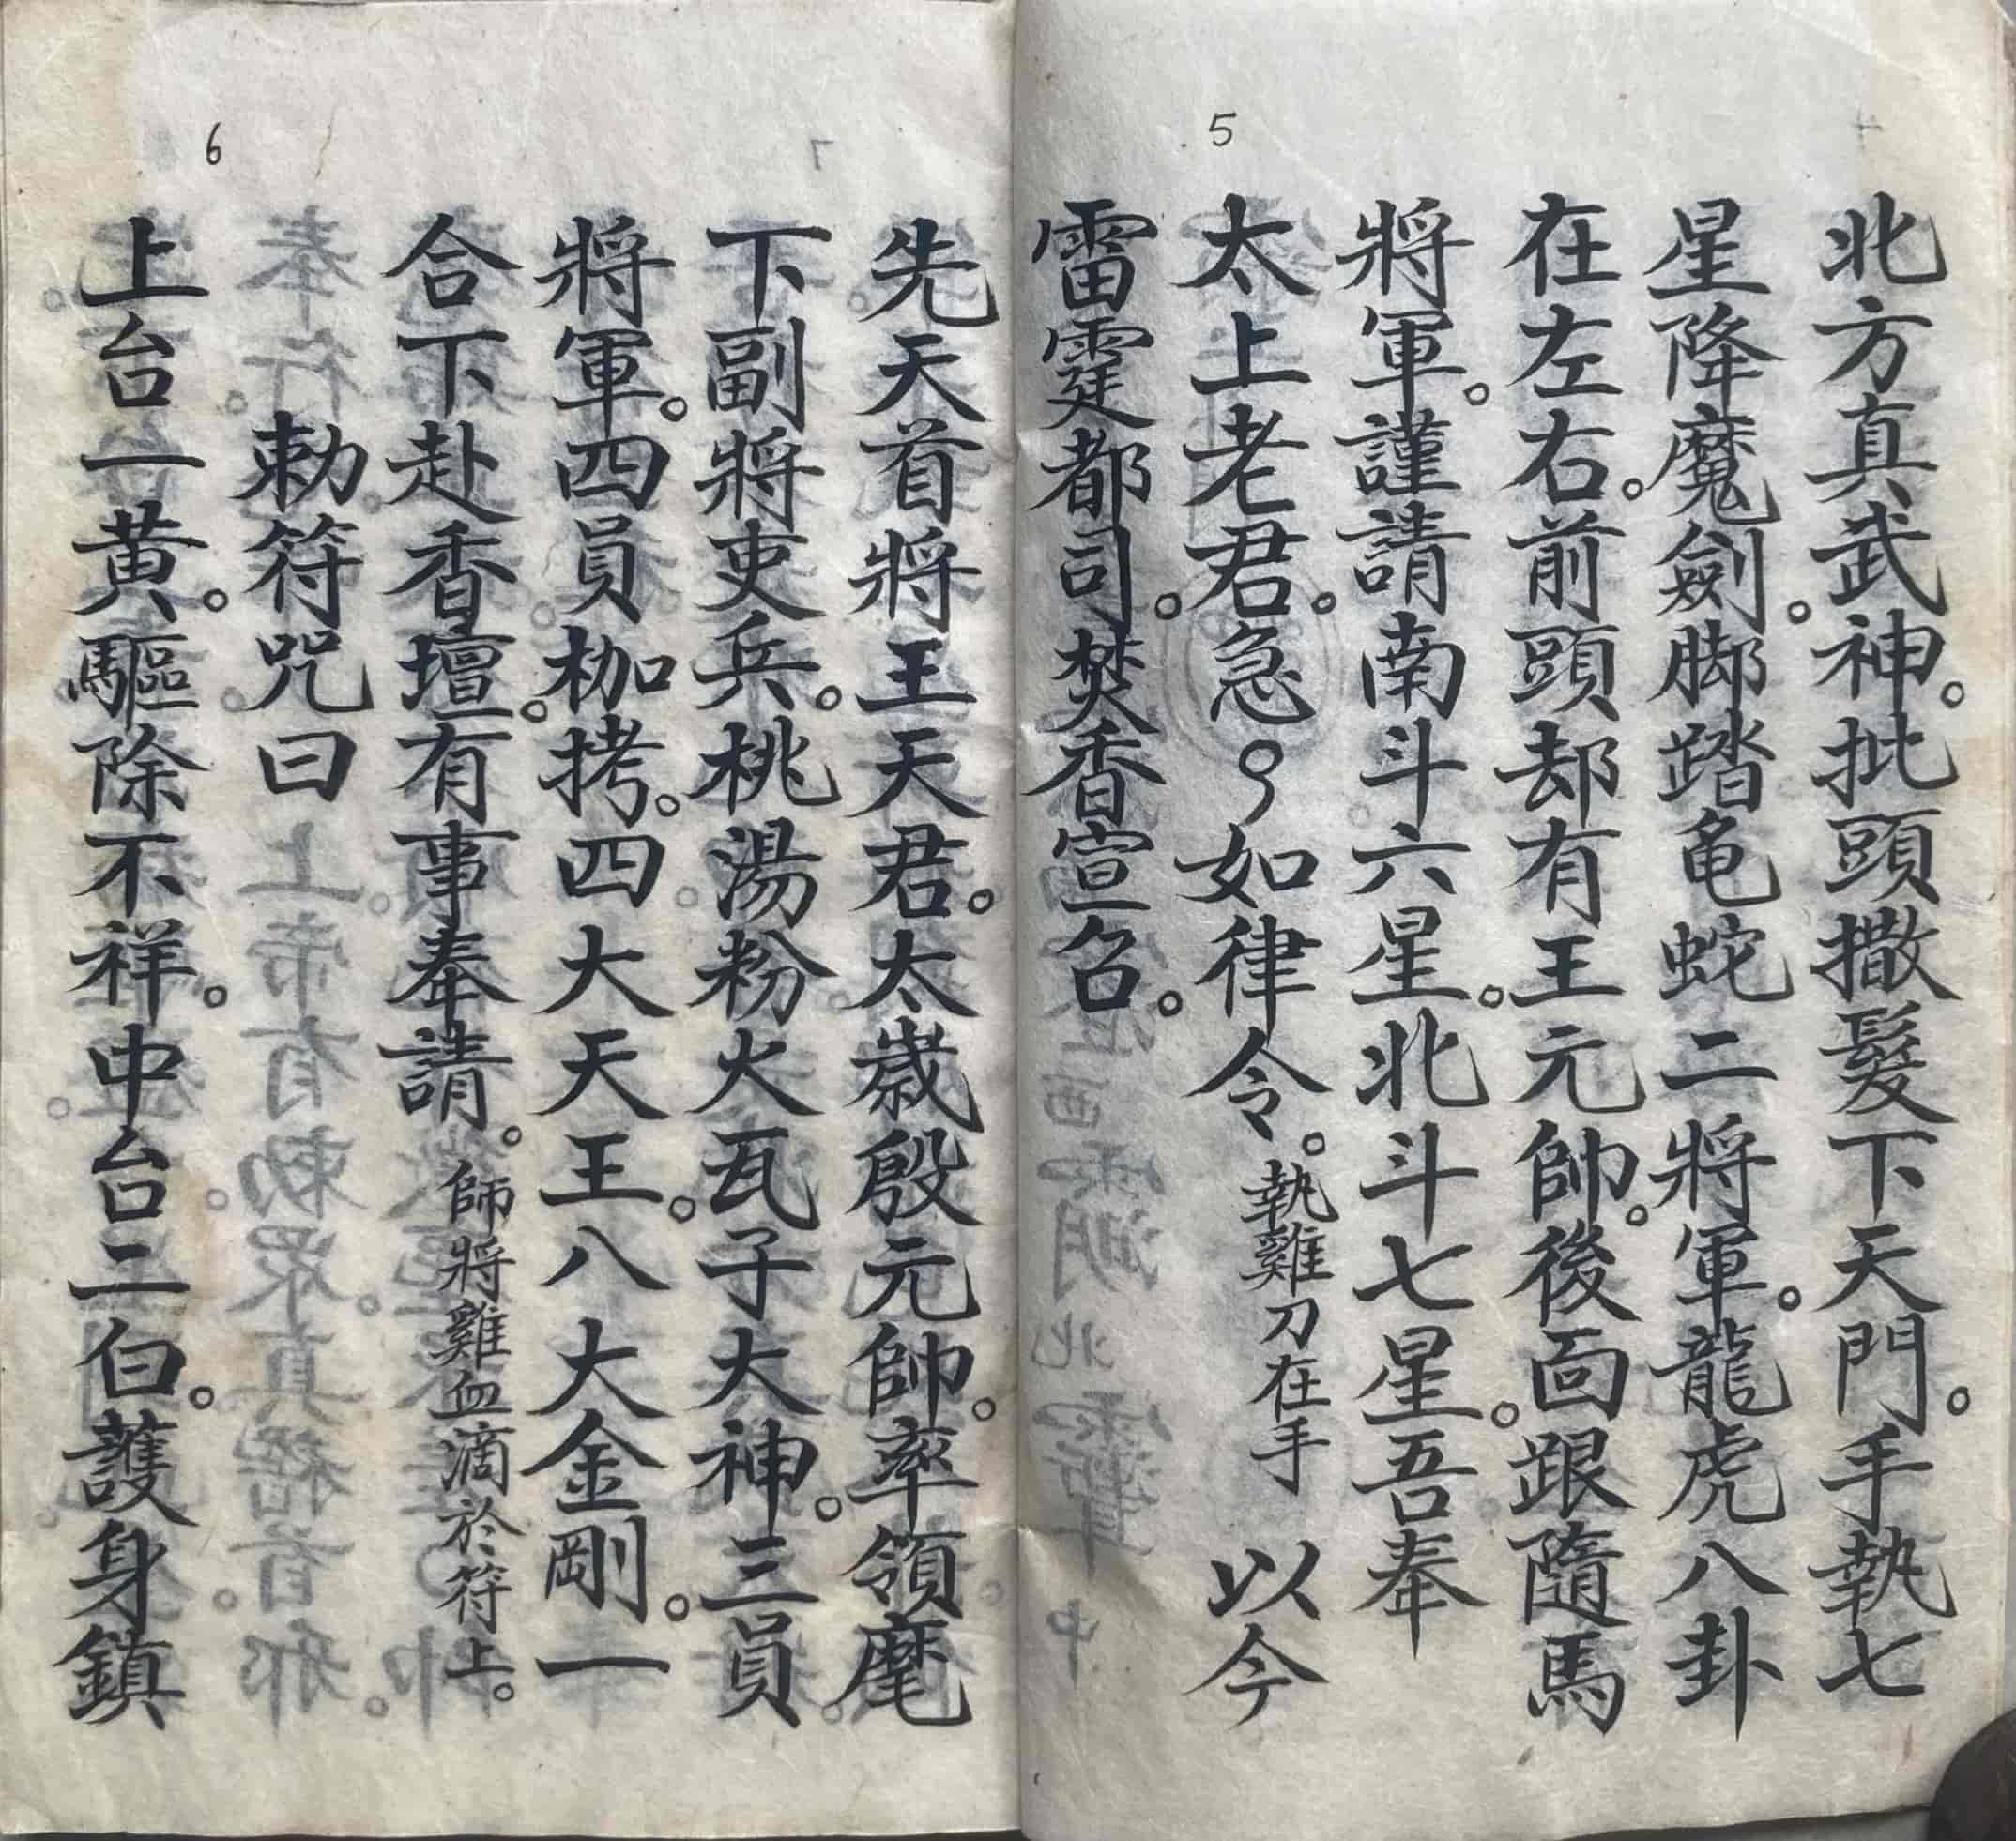 5
北方真武神。批頭撒髮下天門。手執七
星降魔劍。脚踏龟蛇二將軍。龍虎八卦
在左右。前頭却有王元帥。後面跟隨馬
將軍。謹請南斗六星。北斗七星。吾奉
太上老君。急〻如律令。執雞刀在手 以今
雷霆都司。焚香宣召。
6
先天首將王天君。太歲殷元帥。率領麾
下副將吏兵。桃湯粉火瓦子大神。三員
將軍。四員枷拷。四大天王。八大金剛。一
合下赴香壇。有事奉請。師將雞血滴於符上。
勅符咒曰
上台一黄。驅除不祥。中台二白。護身鎮